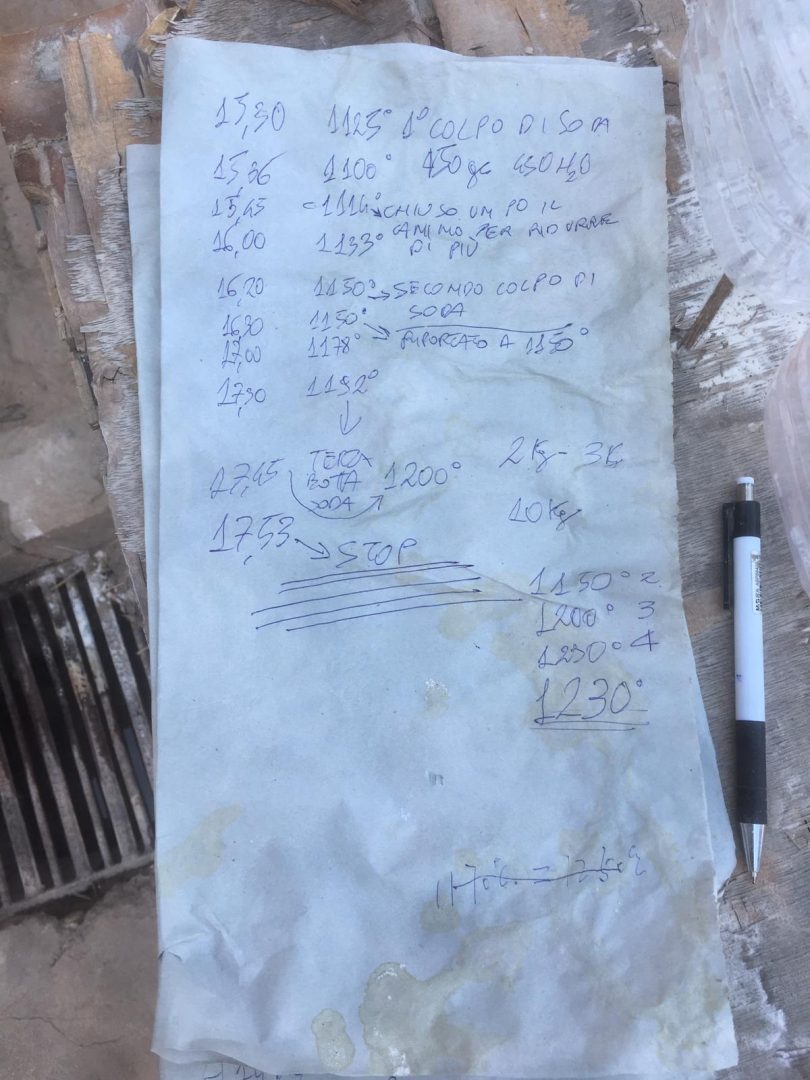 15,30 1125° 1° COLPO DI SODA
15,36 1100° 450 gr 450 H2O
15,45 1114° → CHIUSO UN PO IL
16,00 1133° CAMINO PER RIDURRE
DI PIÙ
16,20 1150° → SECONDO COLPO DI
SODA
16,30 1150°
17,00 1178° → RIPORTATO A 1150°
17,30 1192°
17,45 TERZA BOTTA SODA 1200°
17,53 → STOP
2 Kg - 3 Kg
10 Kg
1150° 2
1200° 3
1230° 4
1230°